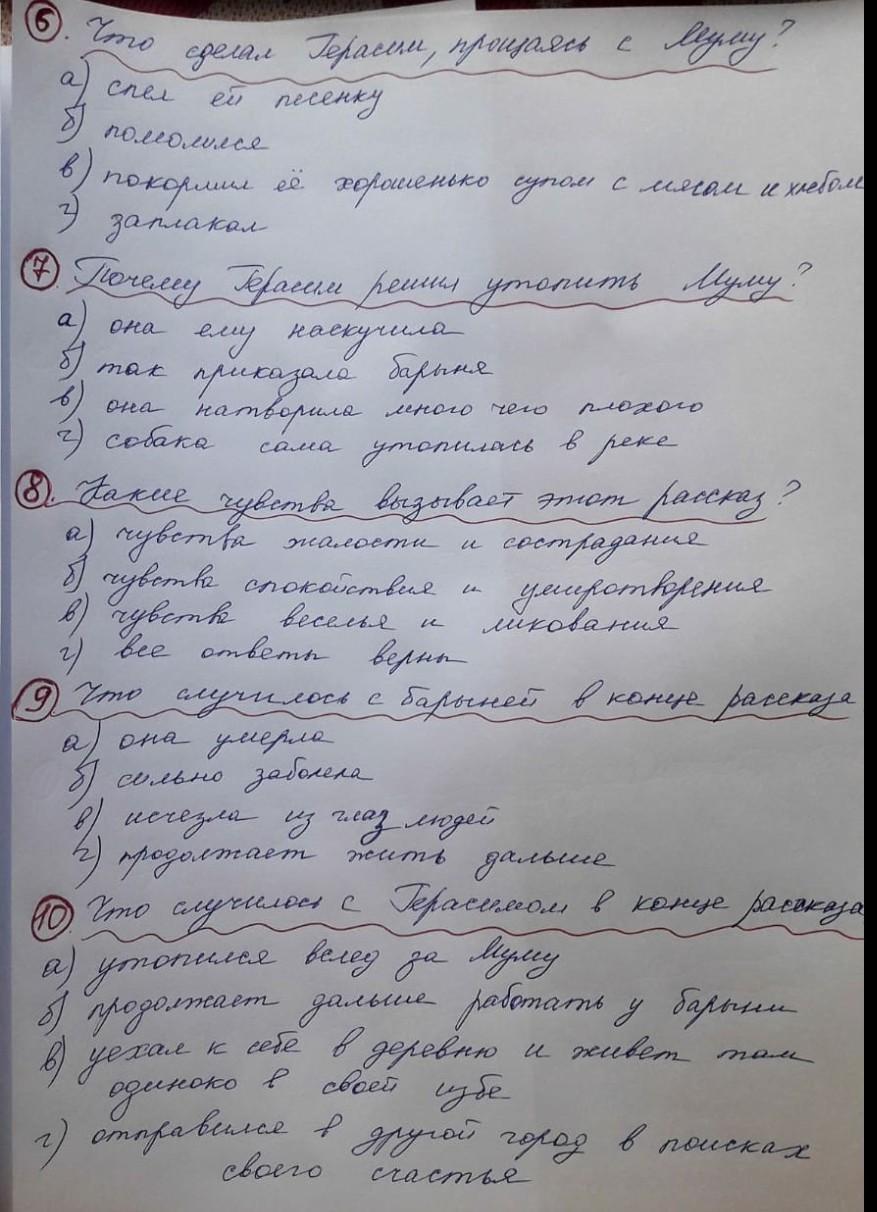 6. Что сделал Герасим, прощаясь с Муму?
а) спел ей песенку
б) помолился
в) покормил её хорошенько супом с мясом и хлебом
г) заплакал
7. Почему Герасим решил утопить Муму?
а) она ему наскучила
б) так приказала барыня
в) она натворила много чего плохого
г) собака сама утопилась в реке
8. Какие чувства вызывает этот рассказ?
а) чувства жалости и сострадания
б) чувства спокойствия и умиротворения
в) чувства веселья и ликования
г) все ответы верны
9 Что случилось с барыней в конце рассказа
а) она умерла
б) сильно заболела
в) исчезла из глаз людей
г) продолжает жить дальше
10 Что случилось с Герасимом в конце рассказа
а) утопился вслед за Муму
б) продолжает дальше работать у барыни
в) уехал к себе в деревню и живет там
одиноко в своей избе
г) отправился в другой город в поисках
своего счастья